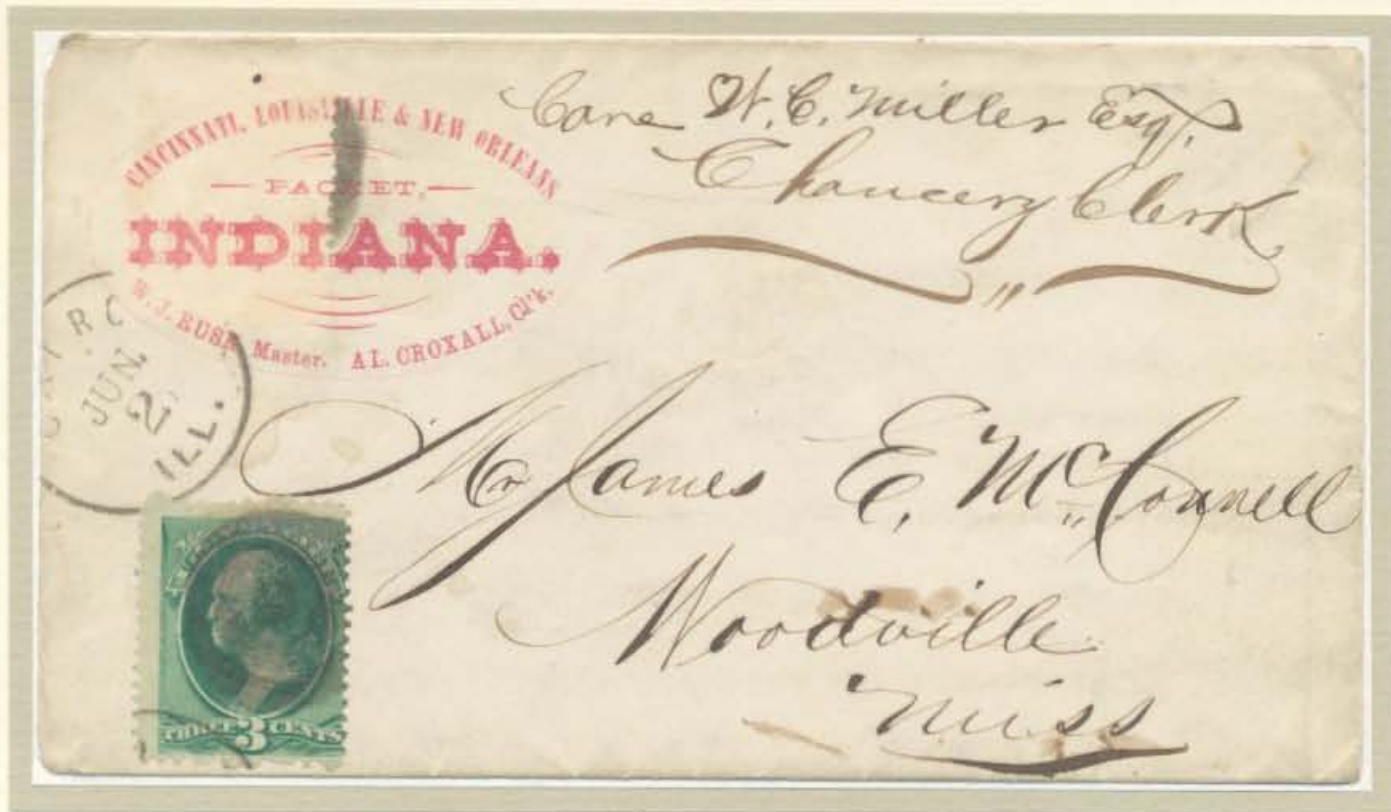 CINCINNATI, LOUISVILLE & NEW ORLEANS
PACKET,
INDIANA.
W. J. RUSK Master. AL. CROXALL, Cl'k.
Care W. C. Miller Esqr.
Chancery Clerk
JUN.
2
ILL.
Mr James E. McConnell
Woodville
Miss
THREE 3 CENTS